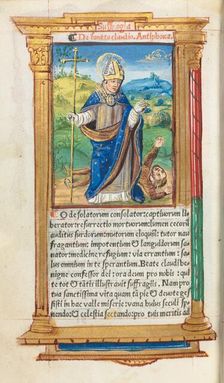 Suffragia
De sancto claudio. Antiphona.
O desolatorum consolator: captiuorum
liberator: resurrectio mortuorum: lumen cecorũ
auditus surdorum: mutorum eloquiũ: tutor nau
fragantium: impotentium & languidorum sa
nator: medicine refugium: via errantium: sa
lus omnium in te sperantium. Beate claudi be
nigne confessor dei: ora deum pro nobis: q̃
que tot & tãti illustrauit suffragiis. Nam pro
tua sanctissima vita quam tã pie & deuote ges
sisti in hac valle miserie: vana huius seculi sper
nendo: & celestia sectando: pro tuis meritis ad